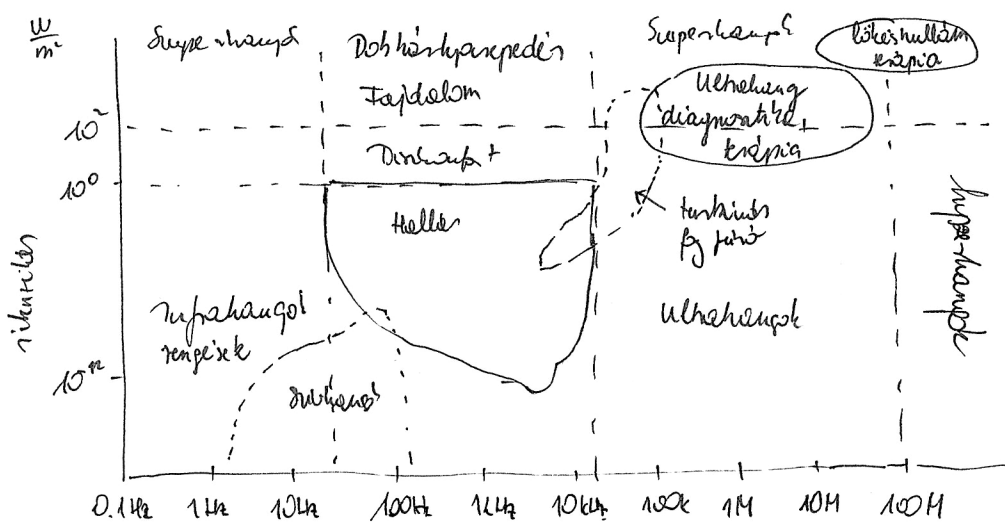 W/m²
Szuperhangok
Dobhártyarepedés
Szuperhangok
lökéshullám
terápia
Fájdalom
Ultrahang
diagnosztika
terápia
10²
Diszkomfort
10⁰
Hallás
turbinás
fogfúró
hiperhangok
Infrahangok
rengések
Ultrahangok
10⁻¹²
0.1Hz 1Hz 10Hz 100Hz 1kHz 10kHz 100k 1M 10M 100M